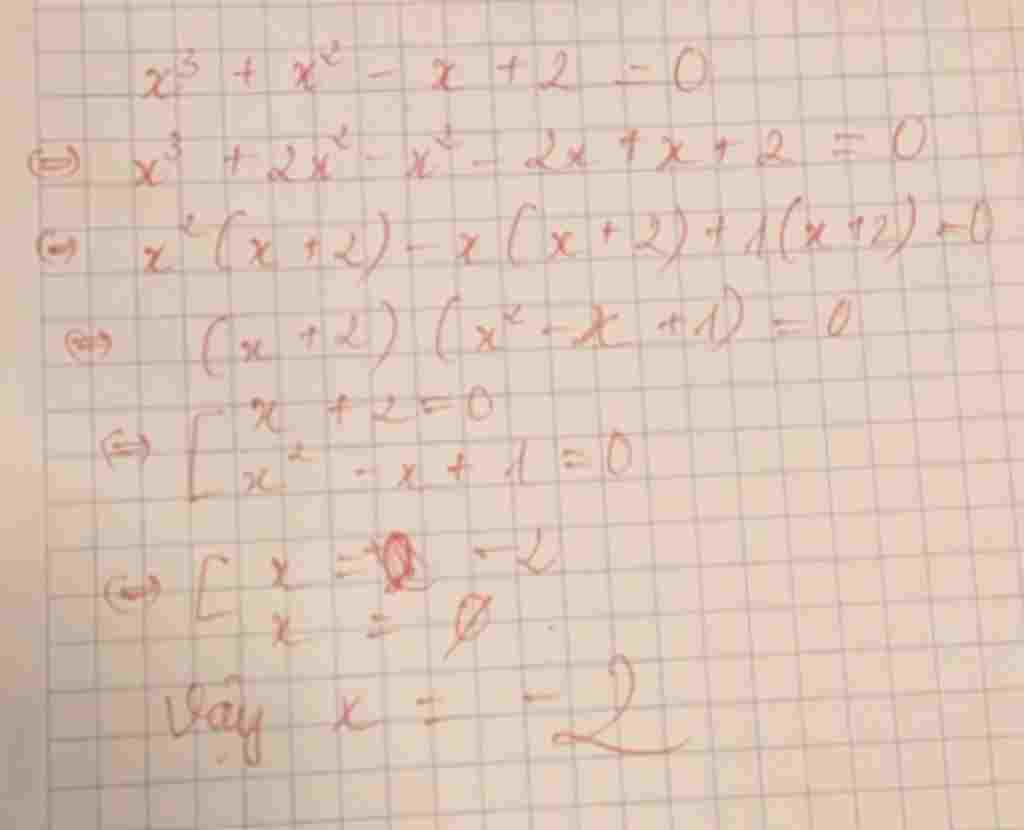 x³ + x² - x + 2 = 0
⇔ x³ + 2x² - x² - 2x + x + 2 = 0
⇔ x² (x + 2) - x (x + 2) + 1(x + 2) = 0
⇔ (x + 2) (x² - x + 1) = 0
⇔ [ x + 2 = 0
x² - x + 1 = 0
⇔ [ x = -2
x = ∅
Vậy x = -2